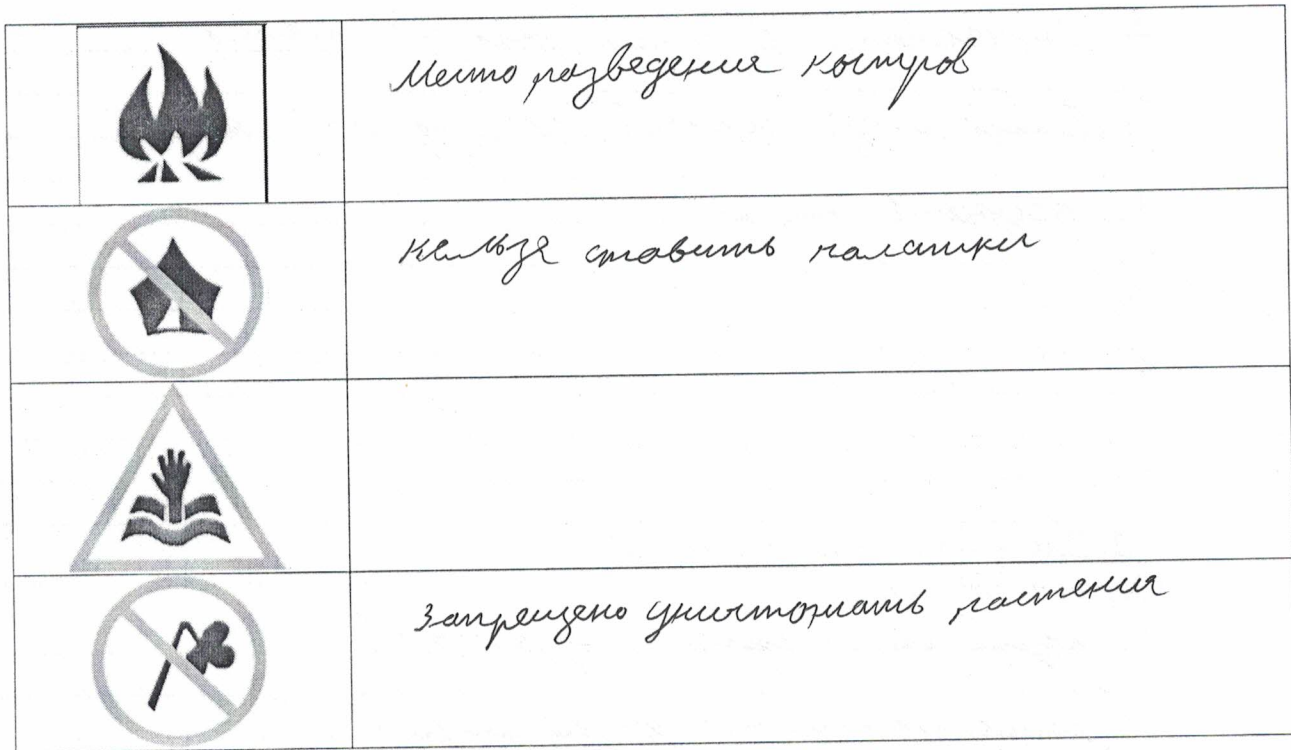 Место разведения костров
нельзя ставить палатки
Запрещено уничтожать растения